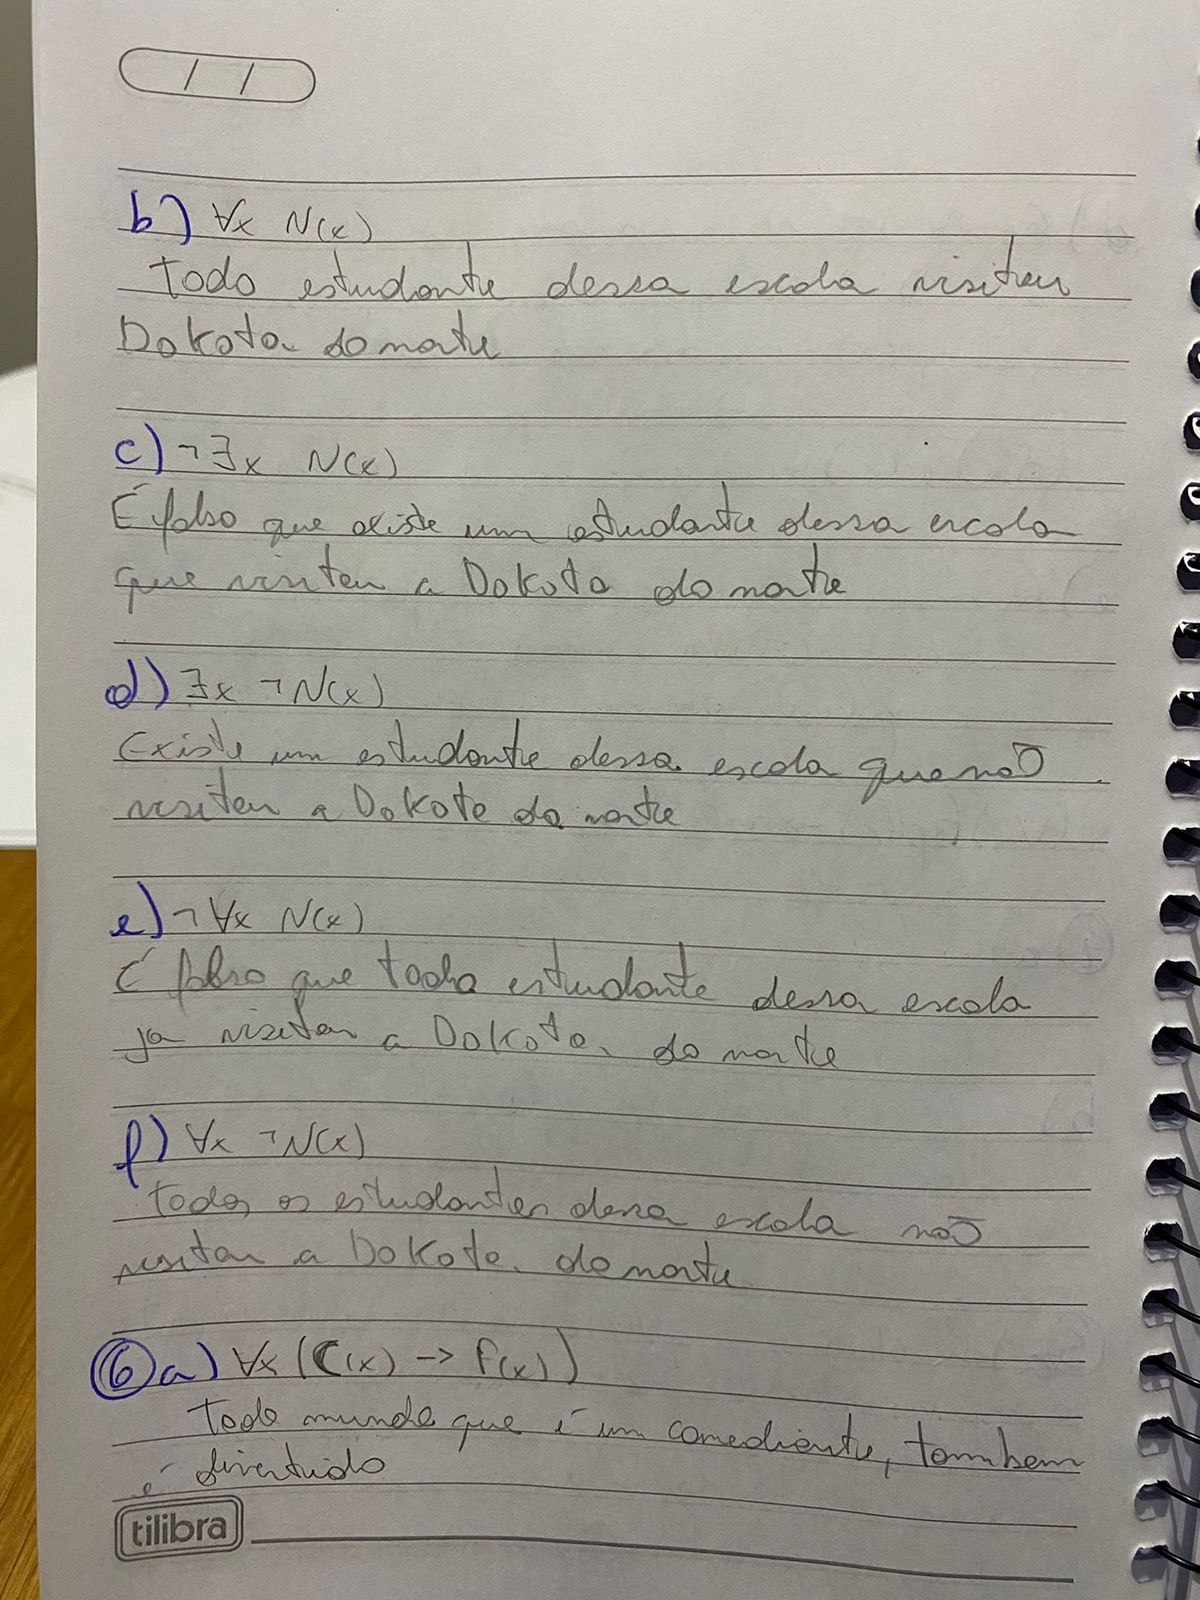 / /
b) ∀x N(x)
Todo estudante dessa escola visitou
Dakota do norte
c) ¬∃x N(x)
É falso que existe um estudante dessa escola
que visitou a Dakota do norte
d) ∃x ¬N(x)
Existe um estudante dessa escola que não
visitou a Dakota do norte
e) ¬∀x N(x)
É falso que todo estudante dessa escola
ja visitou a Dakota do norte
f) ∀x ¬N(x)
Todos os estudantes dessa escola não
visitou a Dakota do norte
6) a) ∀x (C(x) -> F(x))
Todo mundo que é um comediante, tambem
é divertido
tilibra